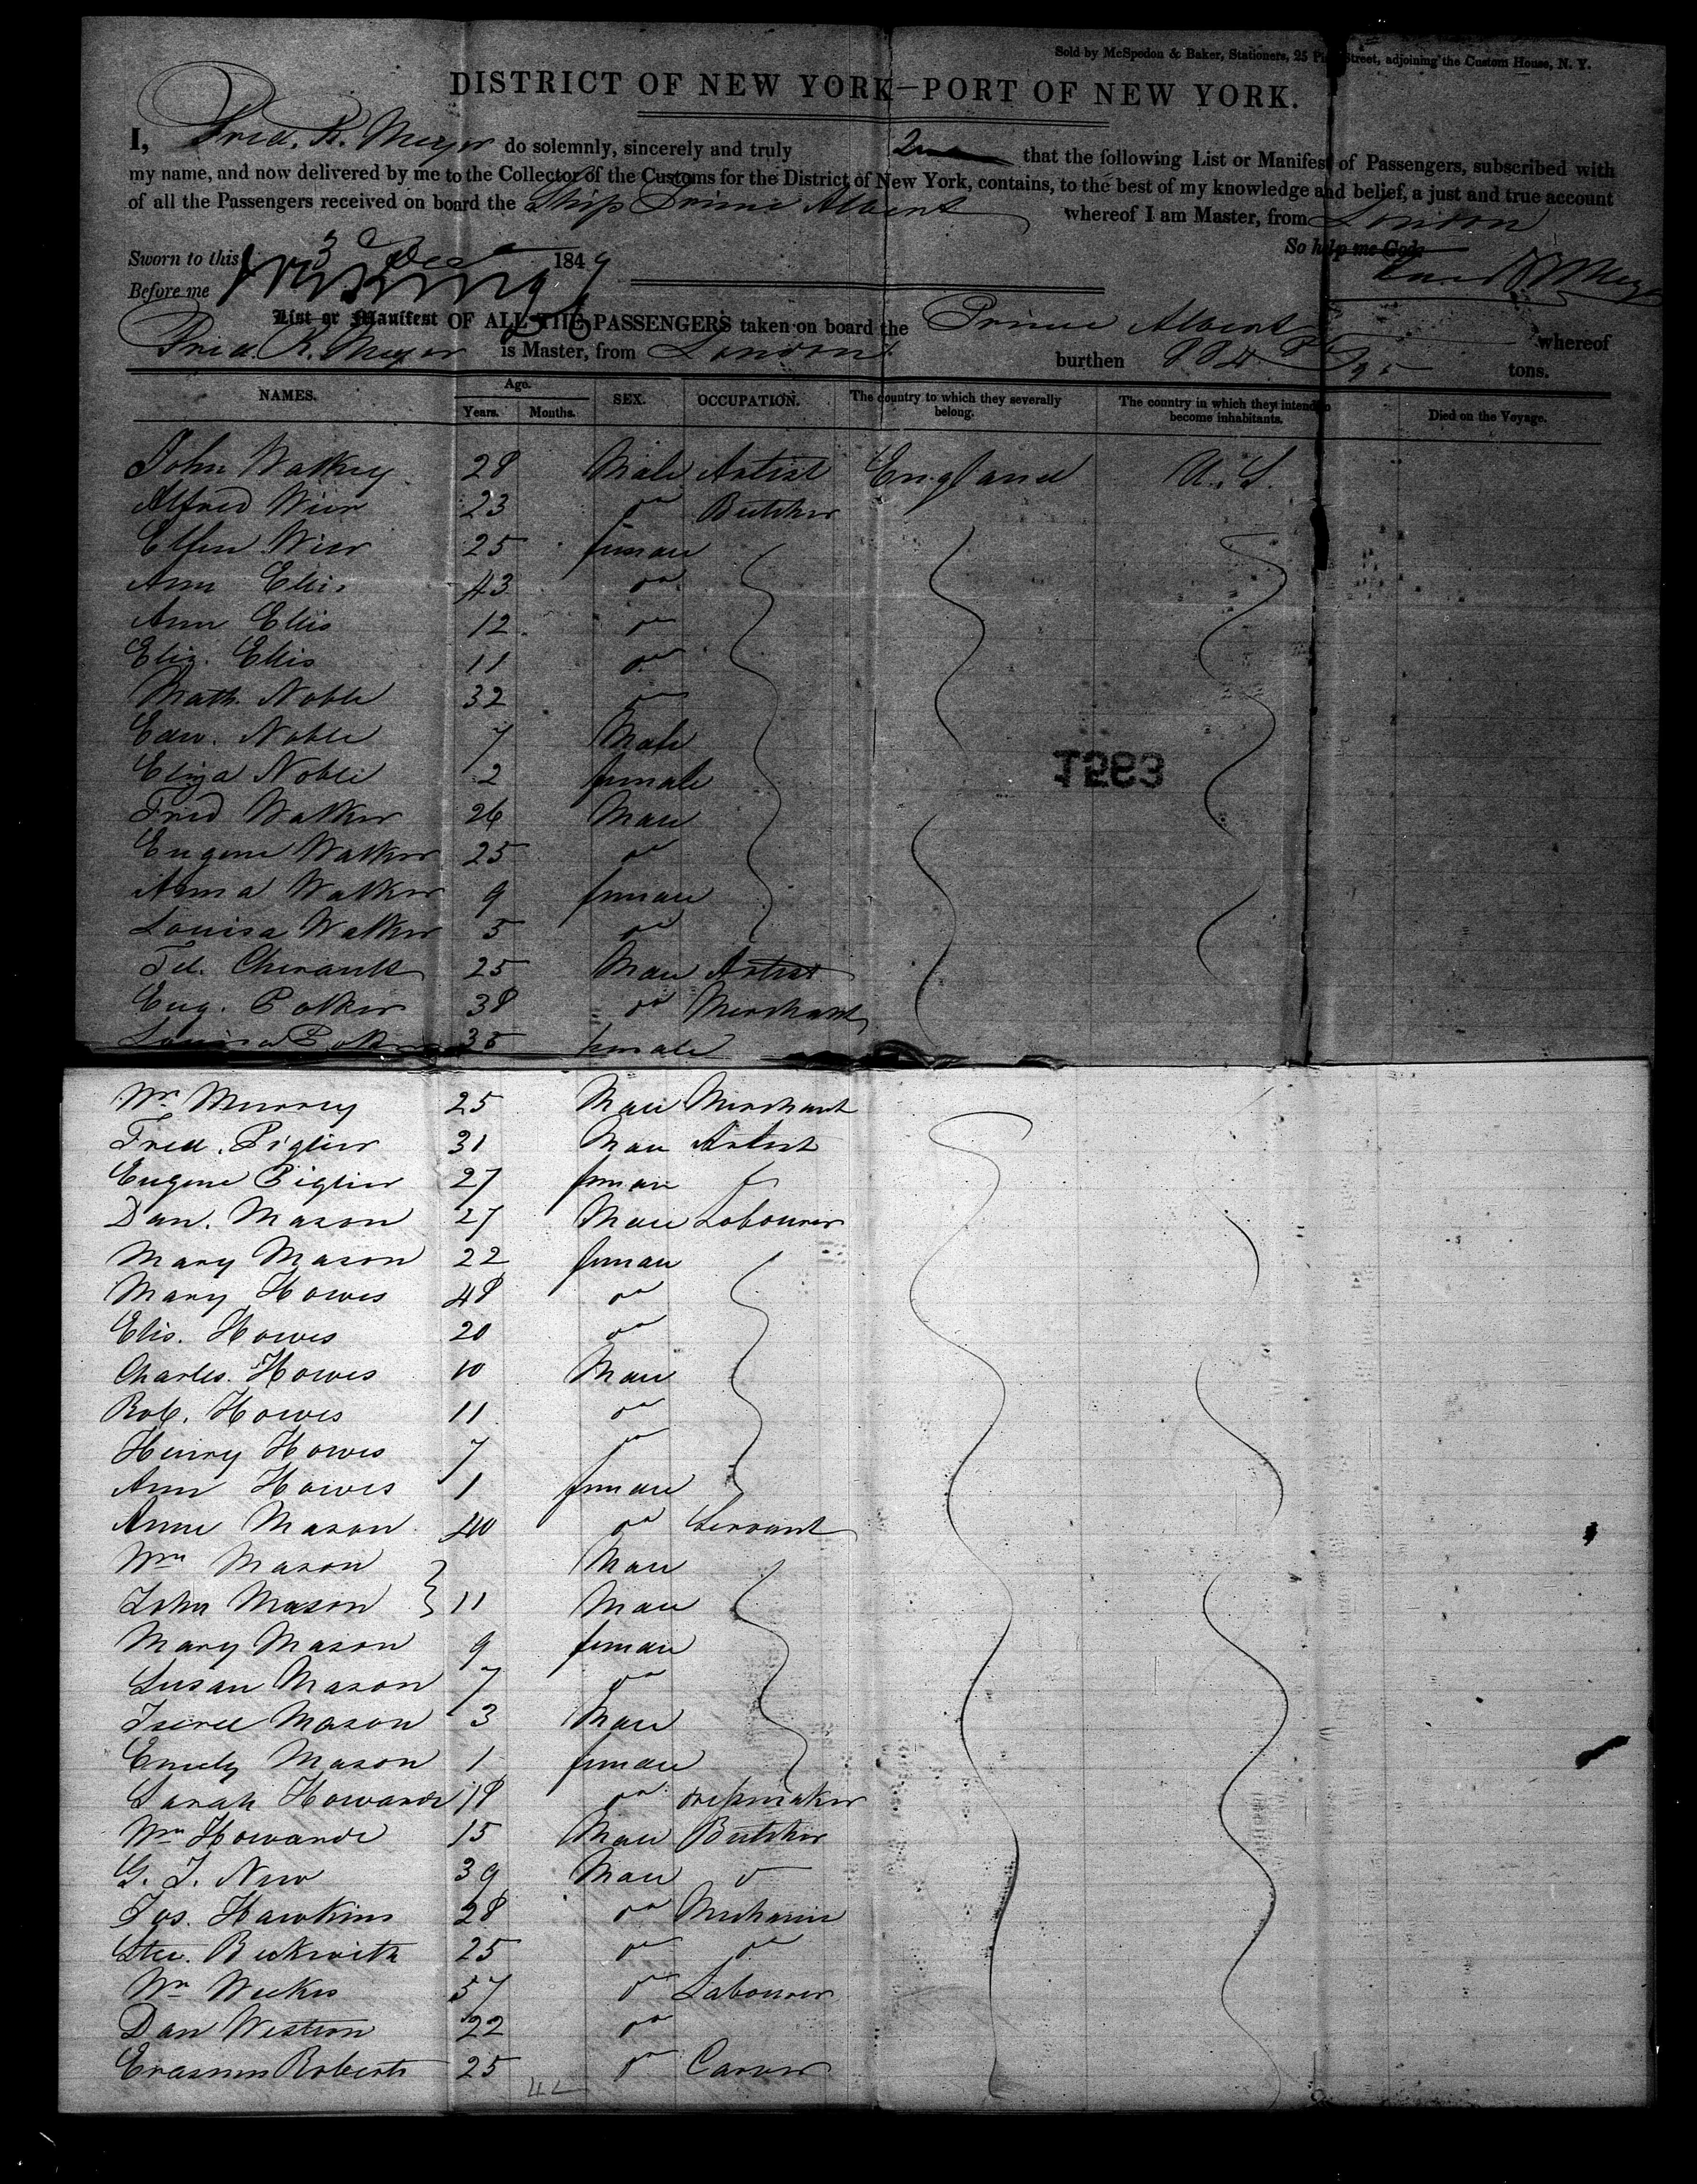 Sold by McSpedon & Baker, Stationers, 25 Street, adjoining the Custom House, N. Y.
DISTRICT OF NEW YORK—PORT OF NEW YORK.
I, Fred. R. Meyer do solemnly, sincerely and truly that the following List or Manifest of Passengers, subscribed with
my name, and now delivered by me to the Collector of the Customs for the District of New York, contains, to the best of my knowledge and belief, a just and true account
of all the Passengers received on board the Ship Prince Albert whereof I am Master, from London
So help me God.
Sworn to this 3 Dec 1849
Before me
List or Manifest OF ALL THE PASSENGERS taken on board the Prince Albert whereof
Fred. R. Meyer is Master, from London burthen 884 /95 tons.
NAMES. Age. Years. Months. SEX. OCCUPATION. The country to which they severally belong. The country in which they intend to become inhabitants. Died on the Voyage.
John Walkey 28 Male Artist England U. S.
Alfred Wier 23 do Butcher
Ellen Wier 25 female
Ann Ellis 43 do
Ann Ellis 12 do
Eliz. Ellis 11 do
Math. Noble 32 do
Edw. Noble 7 Male
Eliza Noble 2 female
Fred Walker 26 Male
Eugene Walker 25 do
Anna Walker 9 female
Louisa Walker 5 do
1283
25 Male Artist
Eug. Potker 38 do Merchant
Louisa Potker 35 female
Wm Murrey 25 Male Merchant
Fred. Piglier 31 Male Artist
Eugene Piglier 27 female
Dan. Mason 27 Male Labourer
Mary Mason 22 female
Mary Howes 48 do
Elis. Howes 20 do
Charles. Howes 10 Male
Rob. Howes 11 do
Henry Howes 7 do
Ann Howes 1 female
Anne Mason 40 do Servant
Wm Mason Male
John Mason } 11 Male
Mary Mason 9 female
Susan Mason 7 do
Iserel Mason 3 Male
Emely Mason 1 female
Sarah Howarde 18 do dressmaker
Wm Howarde 15 Male Butcher
G. J. New 39 Male do
Jos. Hawkins 28 do Mechanic
Ste. Beckwith 25 do do
Wm Weekes 57 do Labourer
Dan Western 22 do
Erasmus Roberts 25 do Carver
42